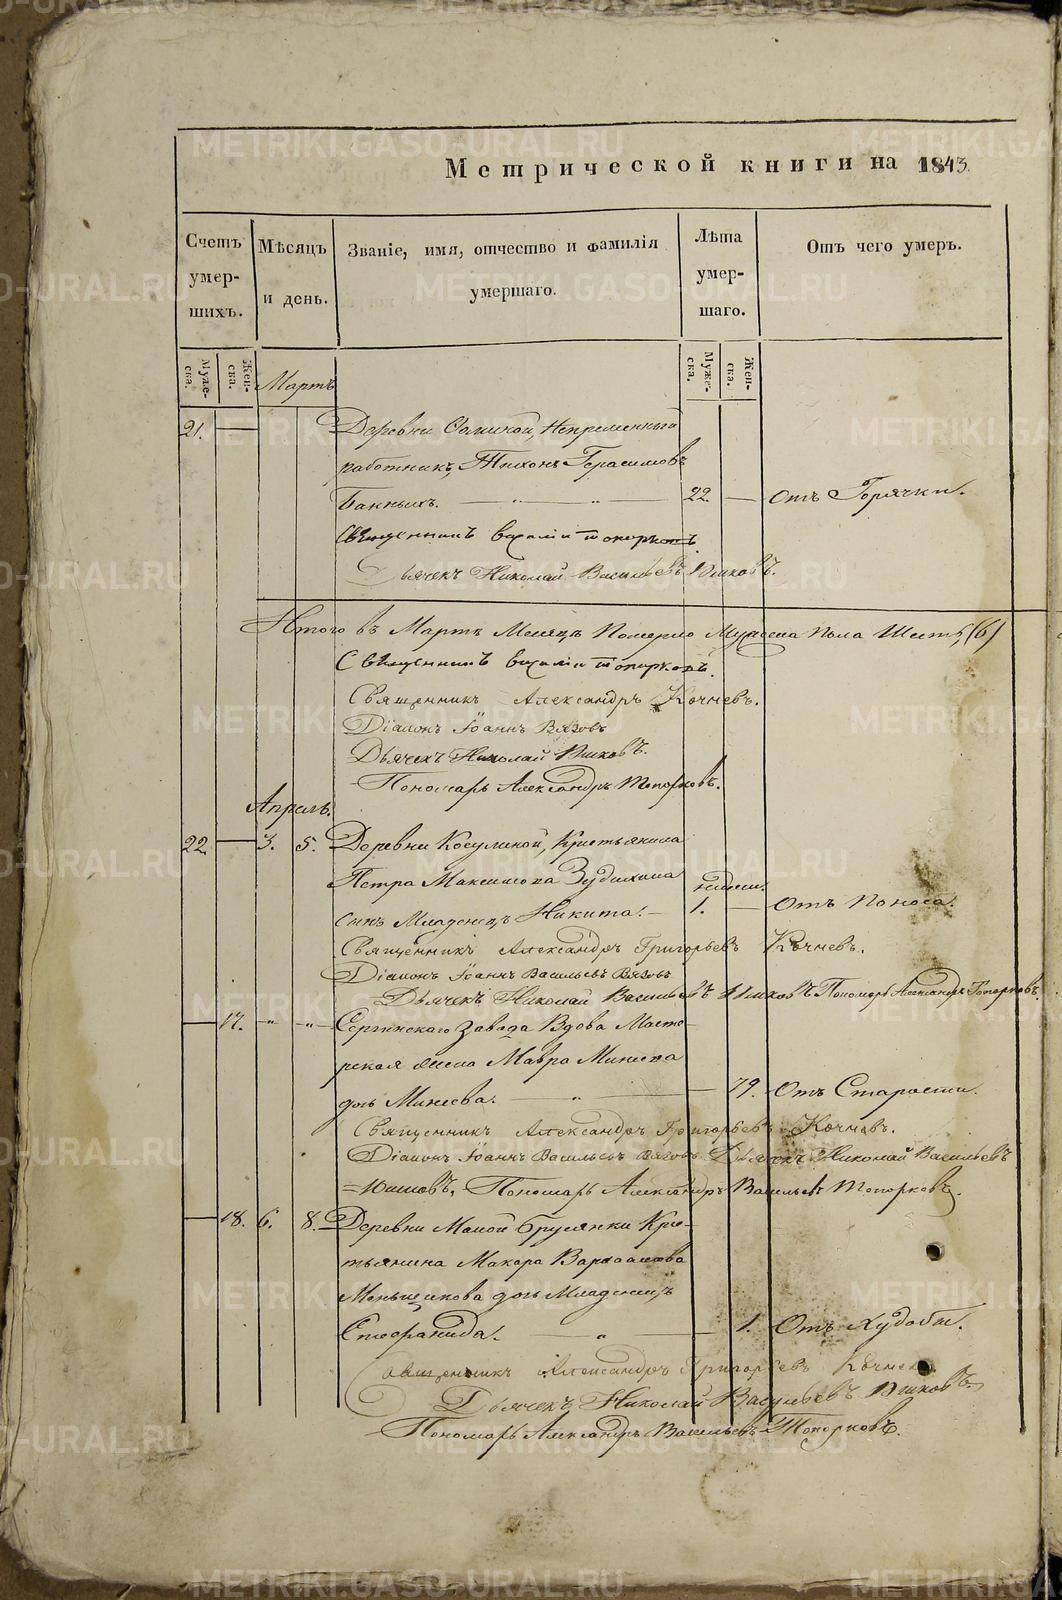 Метрической книги на 1843.
Счетъ умер- шихъ.
Мѣсяцъ и день.
Званіе, имя, отчество и фамилія умершаго.
Лѣта умер- шаго.
Отъ чего умеръ.
Муже- ска.
Жен- ска.
Муже- ска.
Жен- ска.
Мартъ
21. Деревни Непременный
работникъ, Тихонъ Герасимовъ
Банныхъ. 22. Отъ Горячки.
Священникъ Топорковъ
Дьячекъ Николай Васильевъ
Итого въ Мартѣ Месяцѣ Померло Мужеска Пола Шесть, (6)
Священникъ Топорковъ.
Священникъ Александръ Кочневъ.
Діаконъ Іоаннъ Вязовъ
Дьячекъ Николай
Пономарь Александръ Топорковъ.
Апрель.
22 3. 5. Деревни Косулиной, Крестьянина
Петра Максимова Зудихина
недели.
сынъ Младенецъ Никита. 1. Отъ Поноса.
Священникъ Александръ Григорьевъ Кочневъ.
Діаконъ Іоаннъ Васильевъ Вязовъ
Дьячекъ Николай Васильевъ Пономарь Александръ Топорковъ.
17. " " Сергинскаго завода Вдова Масте-
рская жена Мавра Минеева
дочь Минеева. 79. Отъ Старости.
Священникъ Александръ Григорьевъ Кочневъ.
Діаконъ Іоаннъ Васильевъ Вязовъ Дьячекъ Николай Васильевъ
Пономарь Александръ Васильевъ Топорковъ.
18. 6. 8. Деревни Малой Брусянки Крес-
тьянина Макара Варлаамова
Меньшенкова дочь Младенецъ
1. Отъ Худобы.
Священникъ Александръ Григорьевъ Кочневъ
Дьячекъ Николай Васильевъ
Пономарь Александръ Васильевъ Топорковъ.
METRIKI.GASO-URAL.RU